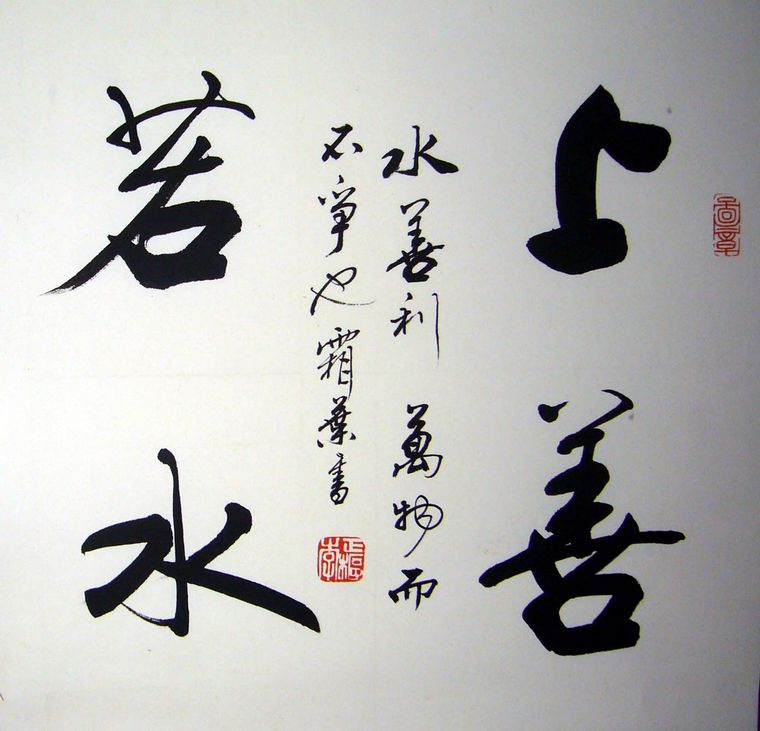 上善
水善利萬物而
不爭也霜葉書
若水